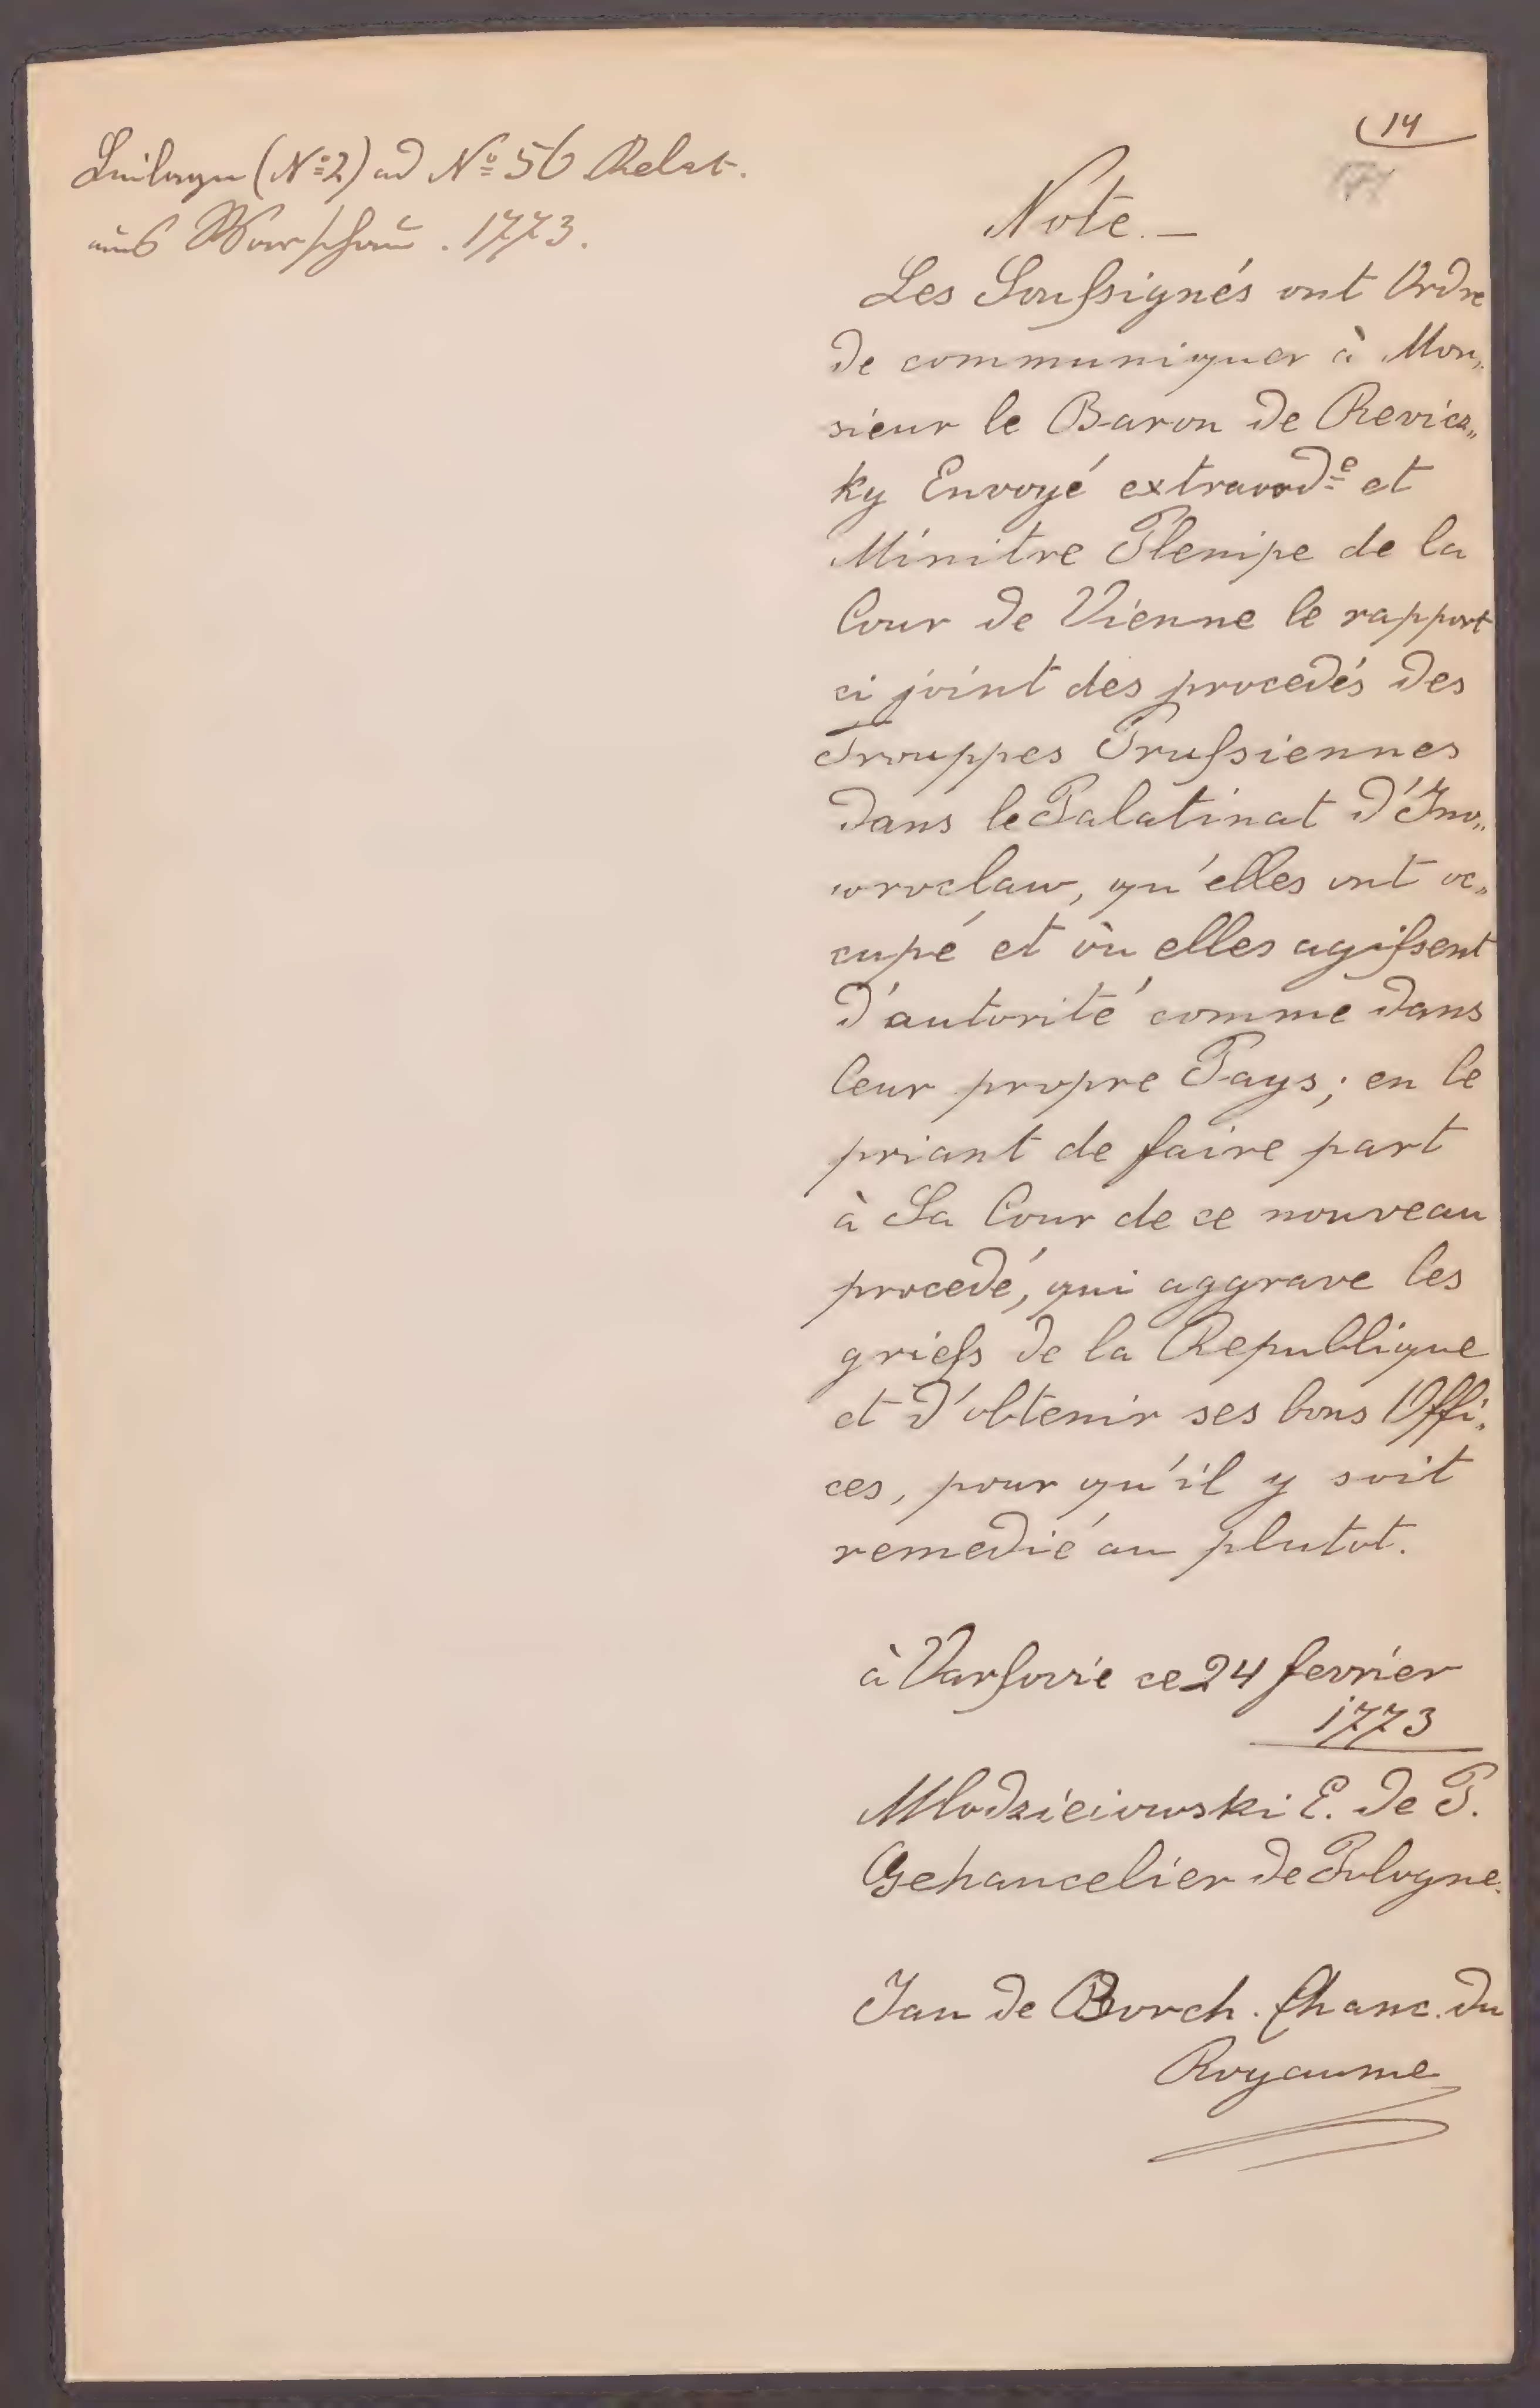 Beilagen (№ 2) ad № 56 Relat.
aus Warschau. 1773.
14
Note. —
Les Soussignés ont Ordre
de communiquer à Mon„
sieur le Baron de Revicz„
ky Envoyé extraord.e et
Minitre Plenipe de la
Cour de Vienne le rapport
ci joint des procedés des
Trouppes Prussiennes
dans le Palatinat d'Ino„
wroclaw, qu'elles ont oc„
cupé et où elles agissent
d'autorité comme dans
leur propre Pays; en le
priant de faire part
à Sa Cour de ce nouveau
procedé, qui aggrave les
griefs de la Republique
et d'obtenir ses bons Offi„
ces, pour qu'il y soit
remedié au plutot.
à Varsovie ce 24 fevrier
1773
Mlodzieiowski E. de P.
Gchancelier de Pologne.
Jan de Borch. Chanc. du
Royaume